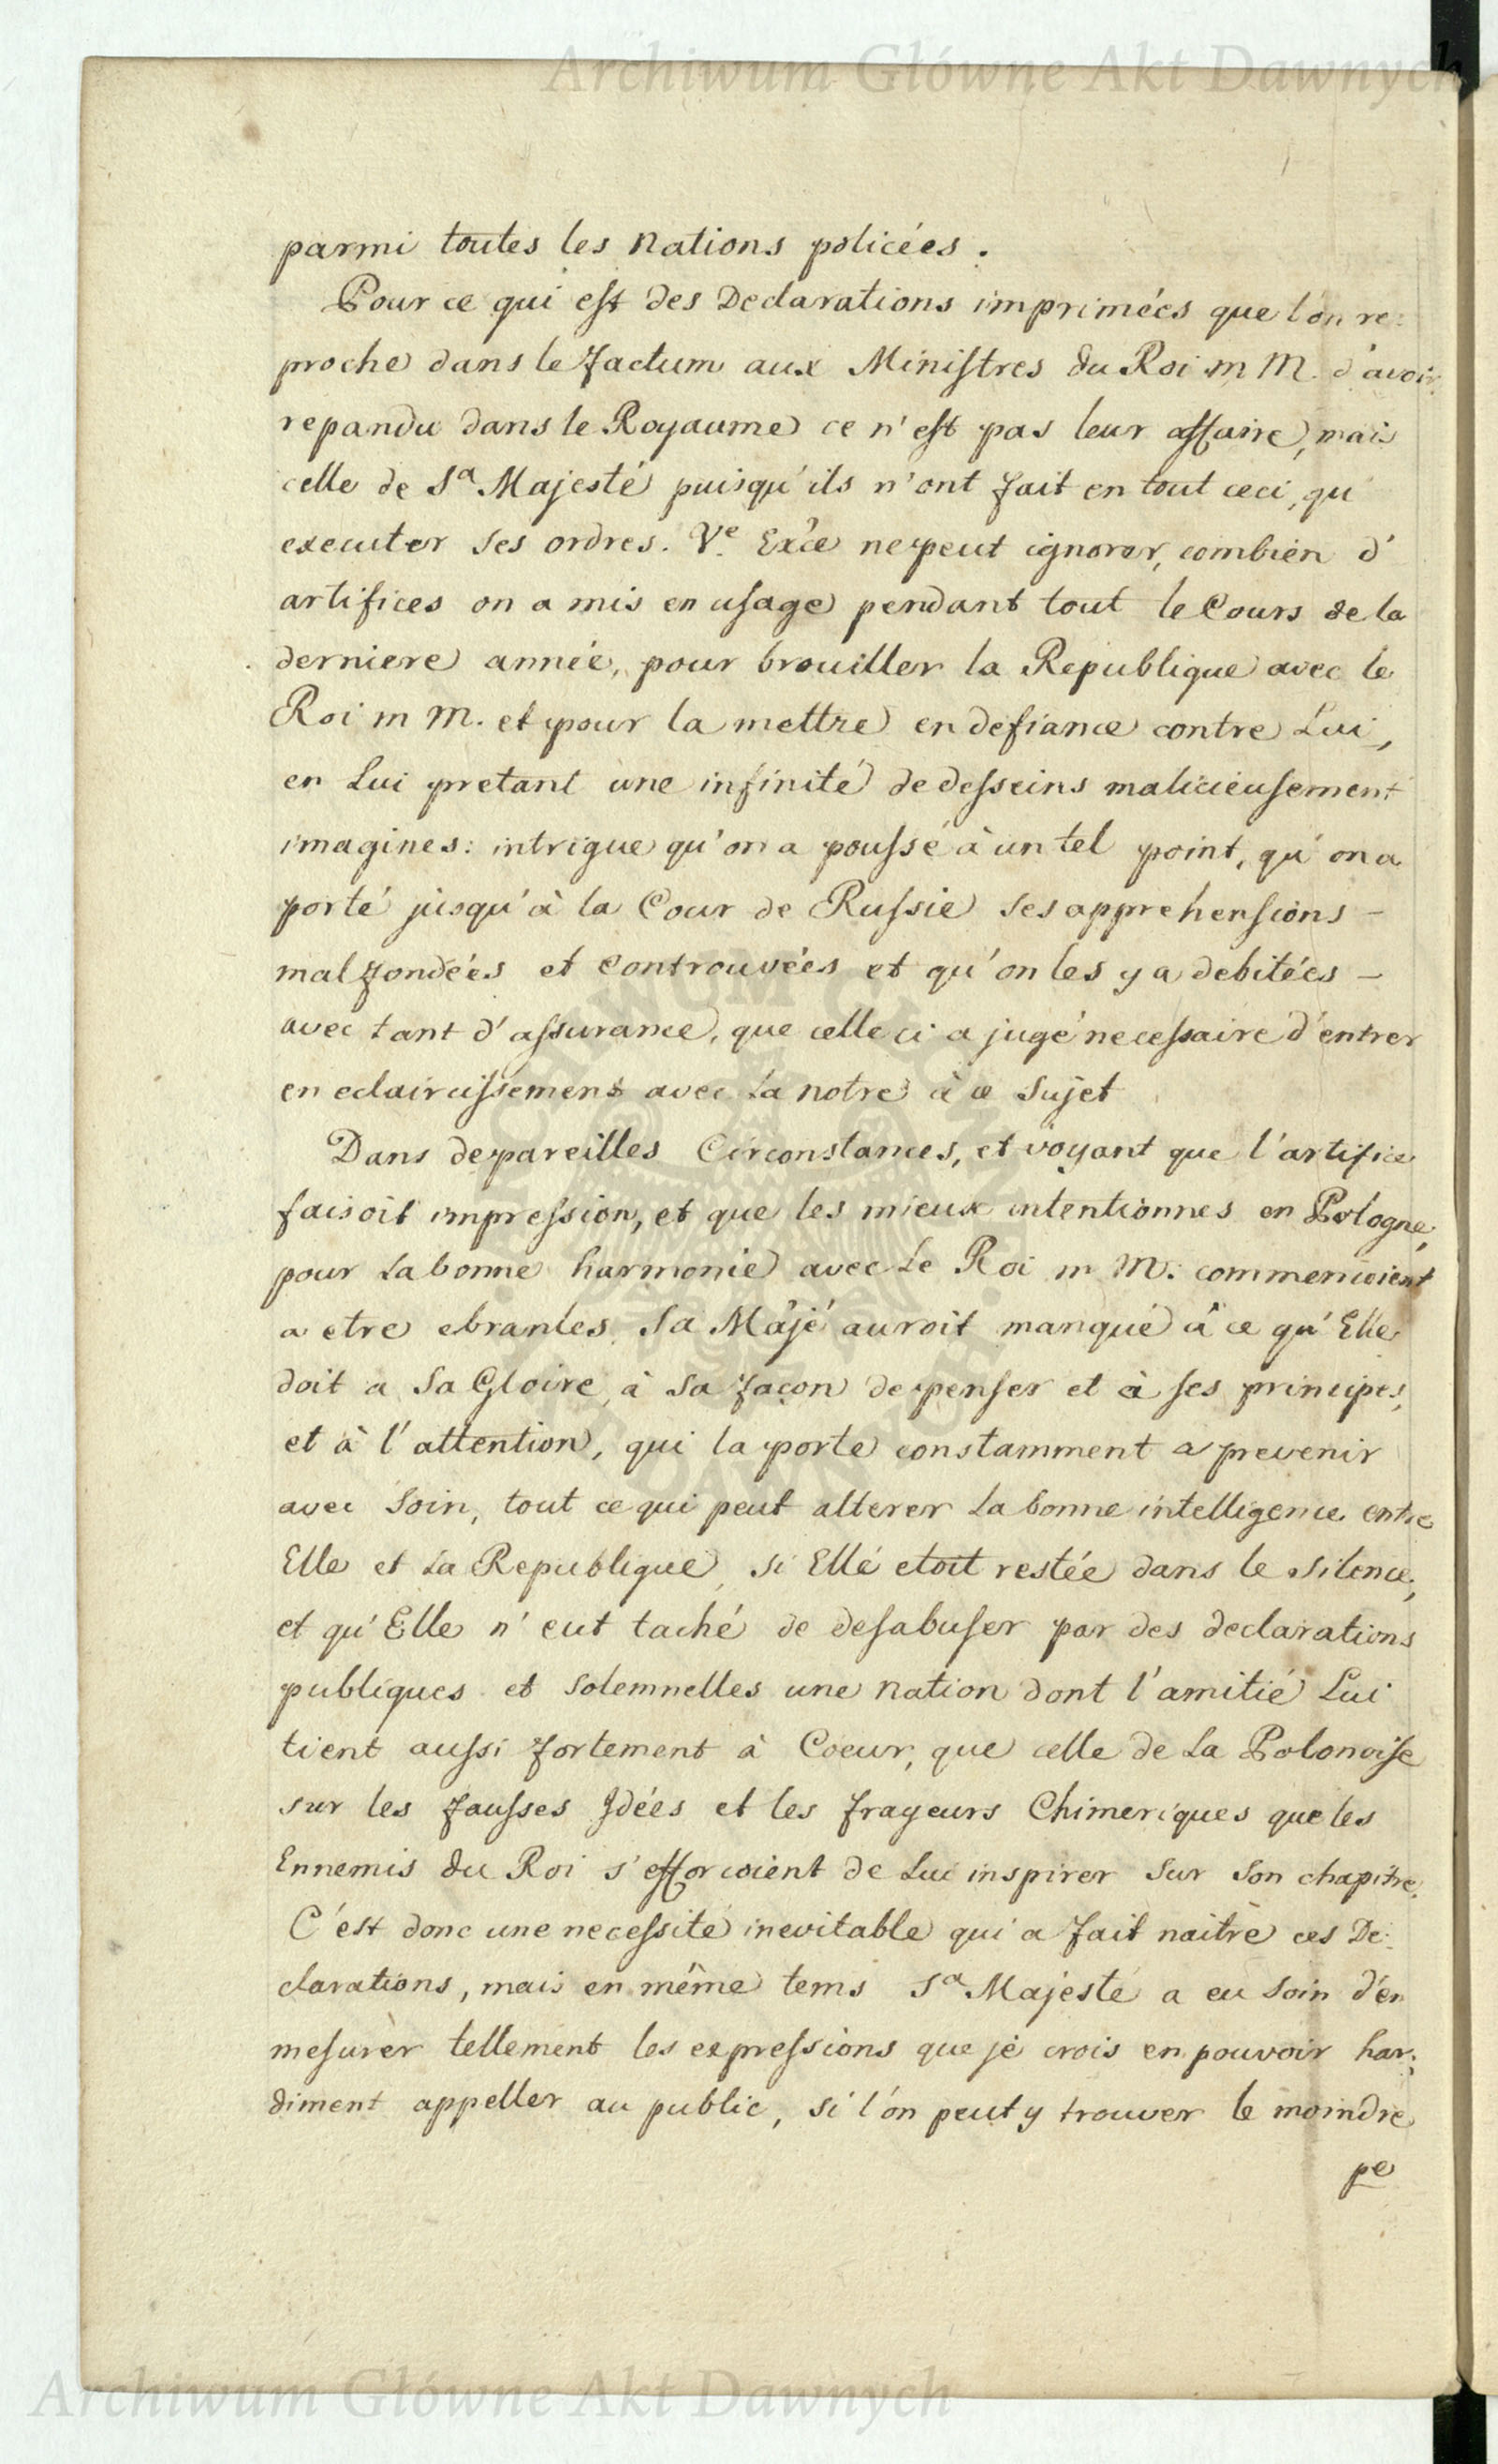 Archiwum Główne Akt Dawnych
parmi toutes les Nations policées.
Pour ce qui est des Declarations imprimées que l'on re:
proche dans le Factum aux Ministres du Roi m M. d'avoir
repandu dans le Royaume ce n'est pas leur affaire, mais
celle de Sa Majesté puisqu'ils n'ont fait en tout ceci, qu'
executer ses ordres. Ve. Exce ne peut ignorer, combien d'
artifices on a mis en usage pendant tout le Cours de la
derniere année, pour brouiller la Republique avec le
Roi m M. et pour la mettre en defiance contre Lui,
en Lui pretant une infinité de desseins malicieusement
imagines: intrigue qu'on a poussé à un tel point, qu'on a
porté jusqu'à la Cour de Russie ses apprehensions –
mal fondées et controuvées et qu'on les y a debitées –
avec tant d'assurance, que celle ci a jugé necessaire d'entrer
en eclaircissement avec La notre à ce Sujet
Dans de pareilles Circonstances, et voyant que l'artifice
faisoit impression, et que les mieux intentionnes en Pologne,
pour La bonne harmonie avec Le Roi m M: commencoient
a etre ebranles. Sa Mâjé auroit manqué à ce qu'Elle
doit a Sa Gloire, à Sa façon de penser et à ses principes,
et à l'attention, qui la porte constamment a prevenir
avec Soin, tout ce qui peut alterer La bonne intelligence entre
Elle et La Republique, si Elle etoit restée dans le Silence,
et qu'Elle n'eut taché de desabuser par des declarations
publiques et Solemnelles une Nation dont l'amitié Lui
tient aussi fortement à Coeur, que celle de La Polonoise
sur les fausses Idées et les frayeurs Chimeriques que les
Ennemis du Roi s'efforcoient de Lui inspirer Sur Son chapitre.
C'est donc une necessité inevitable qui a fait naitre ces De:
clarations, mais en même tems Sa Majesté a eu Soin d'en
mesurer tellement les expressions que je crois en pouvoir har:
diment appeller au public, si l'on peut y trouver le moindre
pe
Archiwum Główne Akt Dawnych